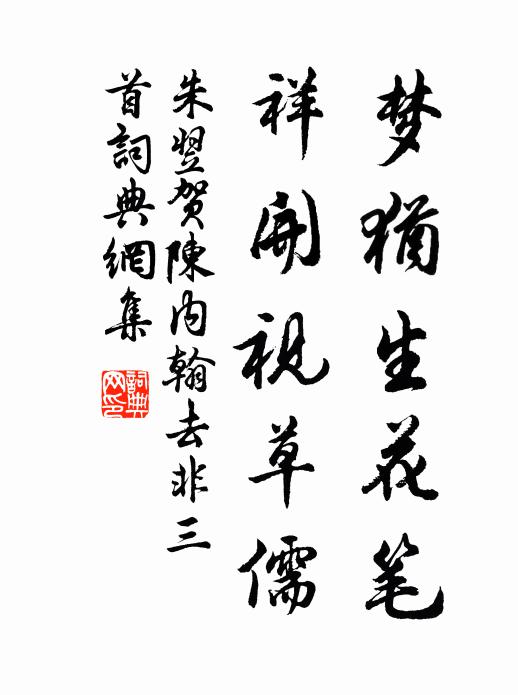 梦猶生花笔
祥開視草儒
朱翌贺陳内翰去非三
首詞典網集
詞典网印